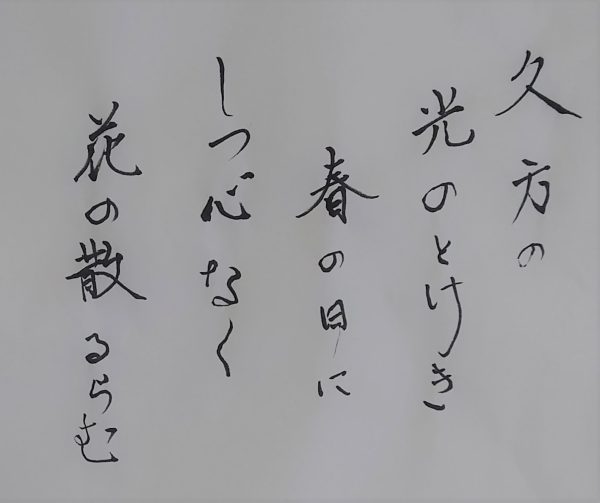 久方の
光のとけき
春の日に
しつ心なく
花の散るらむ